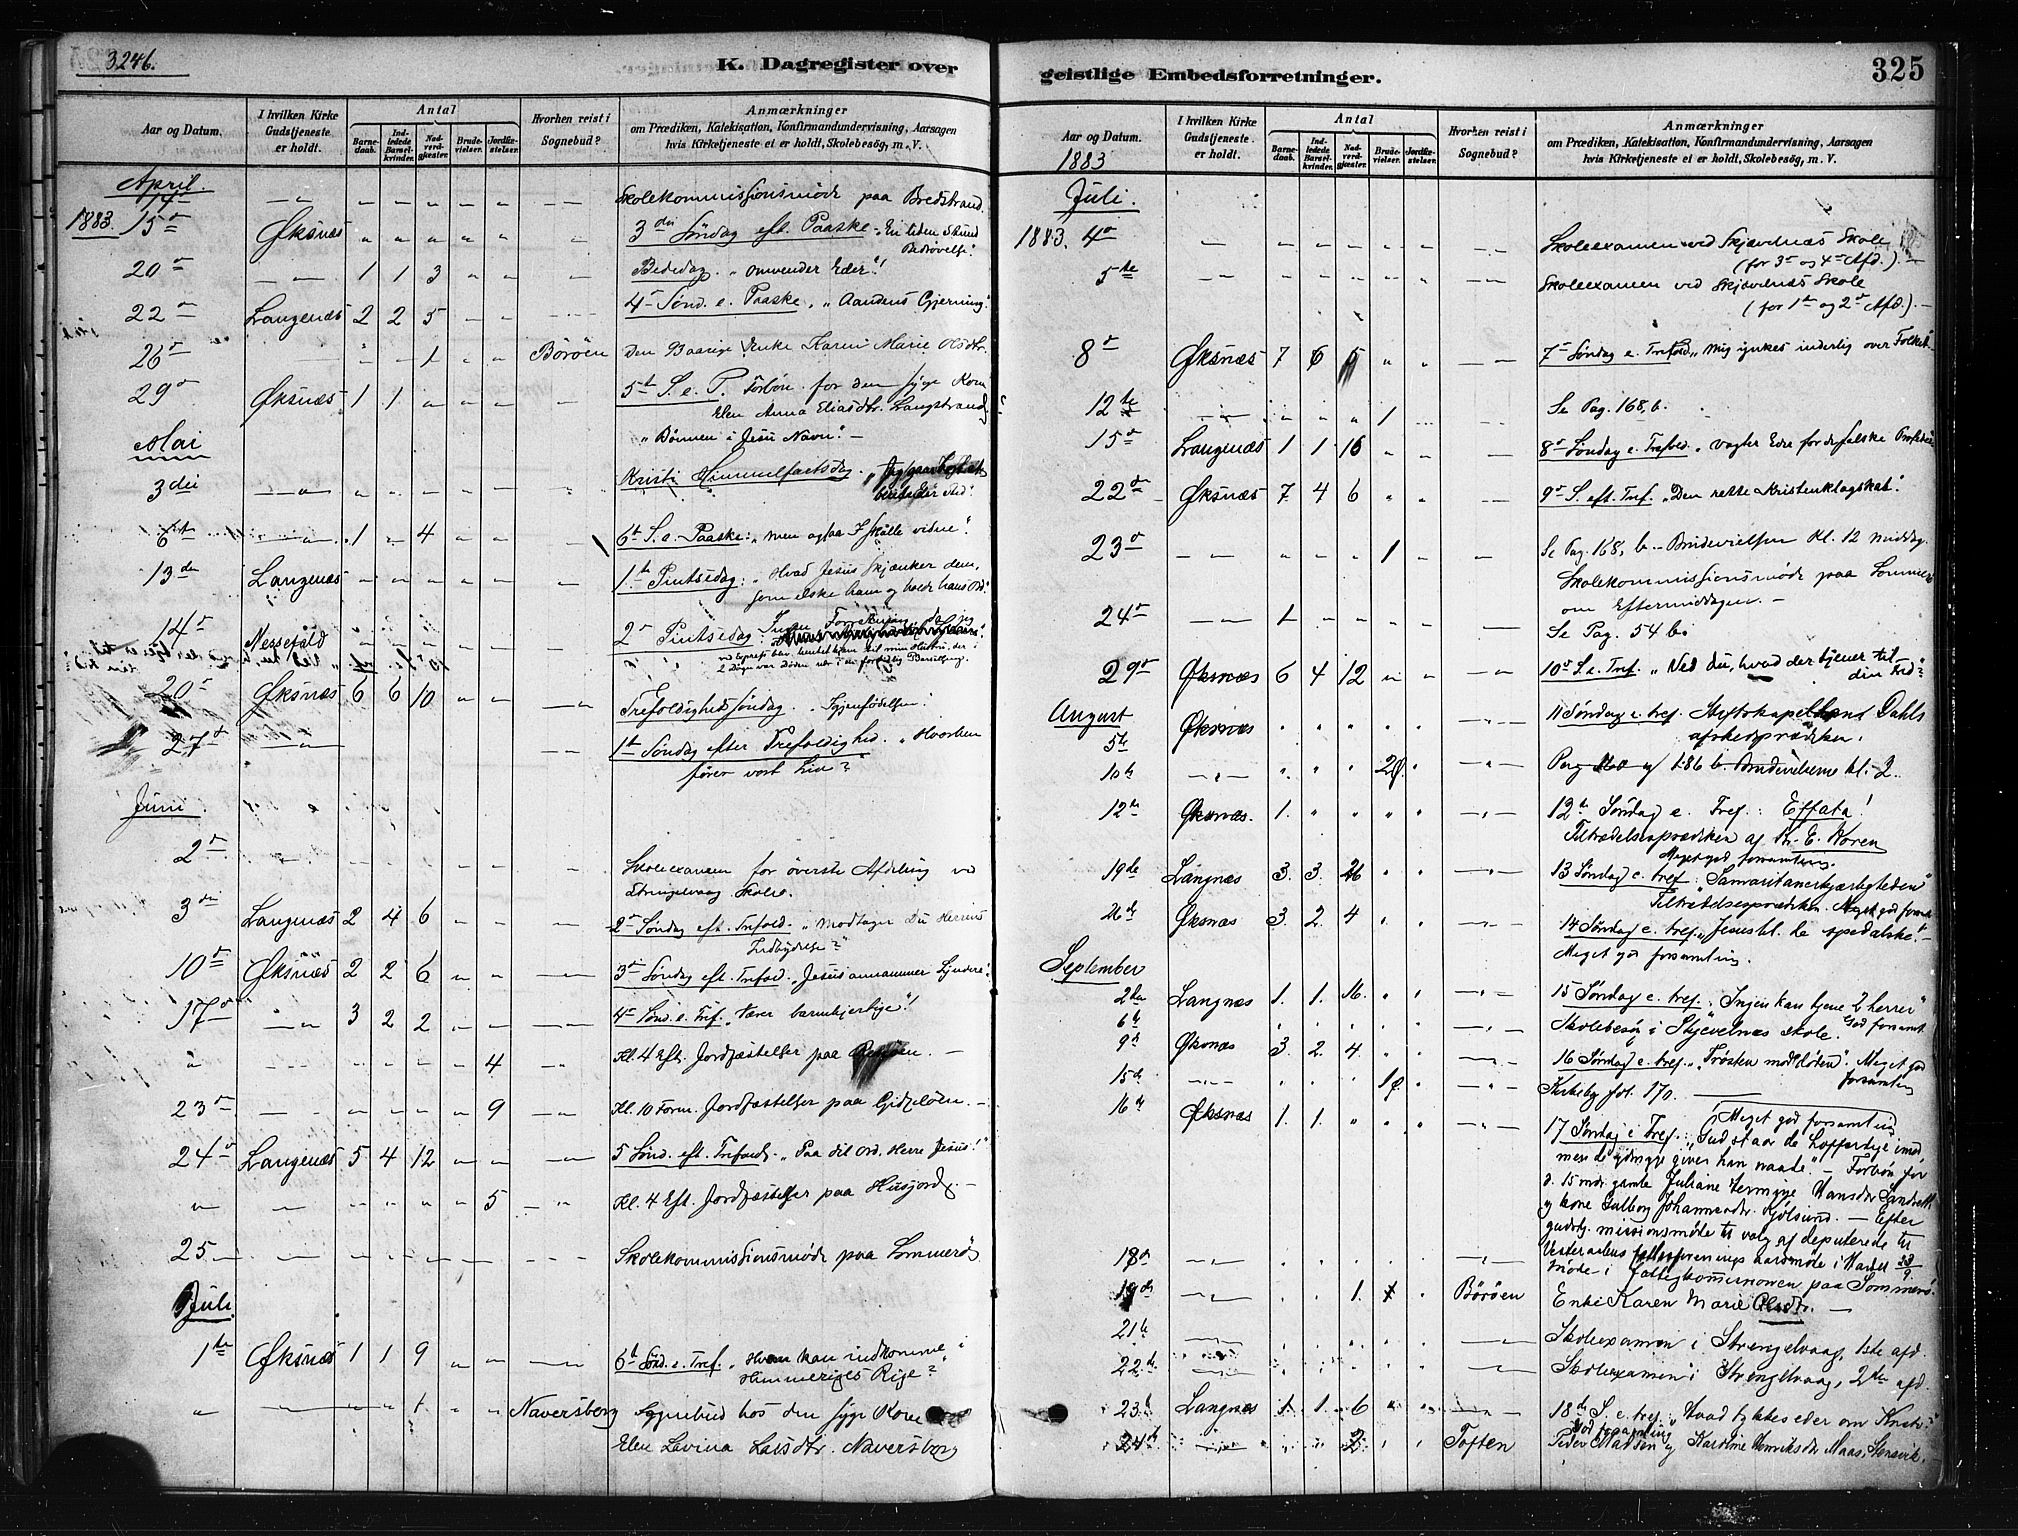 324b.
K. Dagregister over
Aar og Datum.
I hvilken Kirke Gudstjeneste er holdt.
Antal
Barnedaab.
Indledede Barselkvinder.
Nadverdgjester.
Brudevielser.
Jordfæstelser.
Hvorhen reist i Sognebud?
Anmærkninger
om Prædiken, Katekisation, Konfirmandundervisning, Aarsagen
hvis Kirketjeneste ei er holdt, Skolebesög, m. V.
April.
14 Skolekommissionsmöde paa Bredstrand.
1883. 15 Öksnæs 3die Söndag eft. Paaske. "En liden Stund
Bedrövelse".
20 1 1 3 Bededag. "omvender Eder"!
22 Langenæs 2 2 5 4 Sönd. e. Paaske, "Aandens Gjerning."
26 1 Böröen Den 82aarige Enke Karen Marie Olsdtr.
29 Öksnæs 1 1 5te S. e. P. Forbön for den syge Kone
Elen Anna Eliasdtr. Langstrand
"Bönnen i Jesu Navn".
Mai
3die Kristi Himmelfartsdag.
6te 1 4 6te S. e. Paaske: "men ogsaa I skulle vidne".
13de Langenæs 1te Pintsedag: "Hvad Jesus skjænker dem,
som elske ham og holde hans Ord".
14 Nessefald 2 Pintsedag: Ingen Forretning, da jeg
20 Öksnæs 6 6 10 Trefoldighedssöndag. "Igjenfödelsen".
27 1te Söndag efter Trefoldighed. "Hvorhen
förer vort Liv?"
Juni.
2 Skoleexamen for överste Afdeling ved
Strengelvaag Skole.
3die Langenæs 2 4 6 2 Söndag eft. Trefold. "Modtager Du Herrens
Indbydelse?"
10 Öksnæs 2 2 6 3 Söndag eft. Trefold. "Jesus annammer Syndere".
17 3 2 2 4 Sönd. e. Tref. "Værer barmhjertige"!
4 Kl. 4 Eft. Jordfæstelser paa
23 9 Kl. 10 Form. Jordfæstelser paa Gidslöen.
24 Langenæs 5 4 12 5 Sönd. eft. Trefold. "Paa dit Ord, Herre Jesus!"
5 Kl. 4 Eft. Jordfæstelser paa Husjord.
25 Skolekommissionsmöde paa Sommerö
Juli.
1te Öksnæs 1 1 9 6te Sönd. e. Tref. "Hvem kan indkomme i
Himmeriges Rige?"
1 Naversberg Sognebud hos den syge Kone
Elen Lavina Larsdtr. Naversberg
geistlige Embedsforretninger.
325
Aar og Datum.
I hvilken Kirke Gudstjeneste er holdt.
Antal
Barnedaab.
Indledede Barselkvinder.
Nadverdgjester.
Brudevielser.
Jordfæstelser.
Hvorhen reist i Sognebud?
Anmærkninger
om Prædiken, Katekisation, Konfirmandundervisning, Aarsagen
hvis Kirketjeneste ei er holdt, Skolebesög, m. V.
1883
Juli.
1883. 4 Skoleexamen ved Skjævelnæs Skole
(for 3 og 4 Afd.).
5te Skoleexamen ved Skjævelnæs Skole
(for 1te og 2 Afd.).
8 Öksnæs 7 6 7 Söndag e. Trefold. "Mig ynkes inderlig over Folket"
12te 1 Se Pag. 168, b.
15 Langenæs 1 1 8 Söndag e. Trefold. "Vogter Eder for de falske Profeter"
22 Öksnæs 7 4 6 9 S. eft. Tref. "Den rette Kristenklogskab".
23 1 Se Pag. 168, b. Brudevielsen Kl. 12 Middag.
Skolekommissionsmöde paa Sommerö
om Eftermiddagen.
24 1 Se Pag. 54 b.
29 Öksnæs 6 4 12 10 S. e. Tref. "Ved du, hvad der tjener til
din Fred?"
August
5te Öksnæs 11 Söndag e. tref. Stiftskapellant Dahls
afskedsprædiken.
10de 2 Pag 160 og 186 b. Brudevielserne kl. 2.
12te Öksnæs. 1. 12te Söndag e. Tref.: Effata!
Tiltrædelsesprædiken af Kr. E. Koren
Meget god forsamling.
19de Langnæs 3. 3. 26 13 Söndag e. tref.: "Samaritanerkjærligheden"
Tiltrædelsesprædiken. Meget god forsaml.
26de Öksnæs 3. 2. 4 14 Söndag e. tref. "Jesus bl. de spedalske."
Meget god forsamling.
September
2den Langnæs 1. 1. 16. 15 Söndag e. tref.: "Ingen kan tjene 2 herrer"
God forsaml.
6te Skolebesög i Skjevelnæs skole.
9de Öksnæs 3. 2. 4. 16 Söndag e. tref. "Trösten mod döden". Meget god
forsamling
15de 1 Kirkebog fol. 170.
Meget god forsamling
16de Öksnæs 1. 1. 17 Söndag e. Tref.: "Gud staar de hoffærdige imod
men de ydmyge giver han naade". — Forbön for
d. 15 mdr. gamle Juliane Hansdtr Sandsett
og kone Gulborg Johannesdtr. Kjölsund. — Efter
gudstj. missionsmöde til valg af deputerede til
Vesteraalens aarsmöde i Hadsel 23/9.
18 Möde i fattigkommissionen paa Sommerö.
19de 1. Böröen Enke Karen Marie Olsdtr.
21te Skoleexamen i Strengelvaag, 1ste afd.
22de Skoleexamen i Strengelvaag, 2den afd.
23de Langnæs 1 1 6 18de S. e. tref.: "Hvad tykkes eder om Kristus?"
God forsamling
24de 2 Toften Peder Madsen og Karoline Henriksdtr Maas, Stensvik.